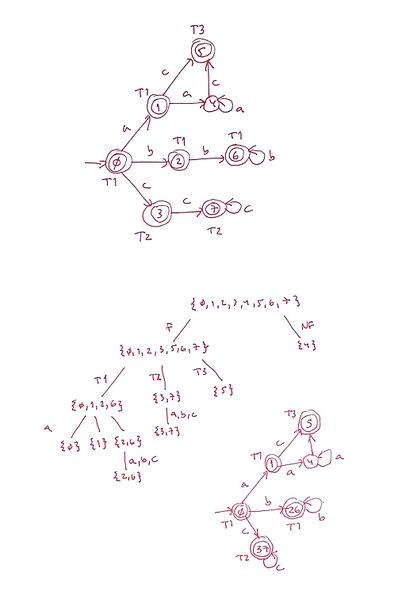 T3
5
c
c
T1
a
1
4
a
a
T1
T1
b
b
∅
2
6
b
T1
c
c
3
7
c
T2
T2
{∅,1,2,3,4,5,6,7}
F
NF
{∅,1,2,3,5,6,7}
{4}
T1
T2
T3
{∅,1,2,6}
{3,7}
{5}
a
a,b,c
{∅}
{1}
{2,6}
{3,7}
a,b,c
{2,6}
T3
5
c
T1
1
4
a
a
a
b
∅
26
b
T1
c
T1
T2
37
c